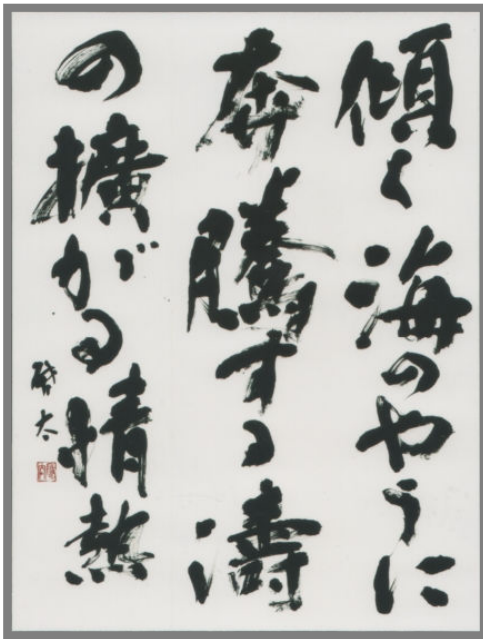 傾く海のやうに
奔騰する濤
の擴がる情熱
啓太